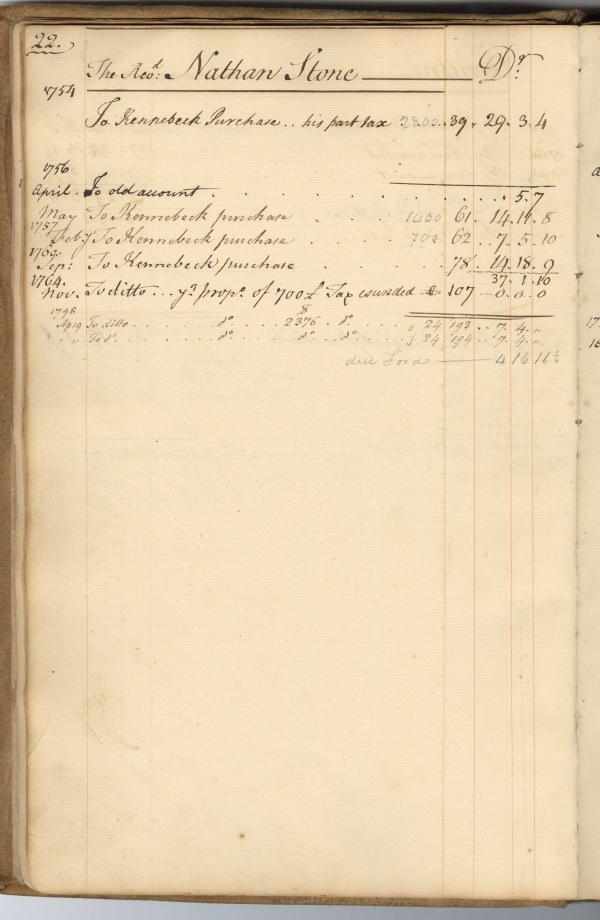 22.
The Revd: Nathan Stone Dr
1754
To Kennebeck Purchase .. his part tax 2800. 39. 29. 3. 4
1756
April. To old account . . . . . . . . . 5. 7
May To Kennebeck purchase . . . 1400 61. 14. 11. 8
1757
Feby To Kennebeck purchase . . . 700 62 .. 7. 5. 10
1760.
Sep: To Kennebeck purchase . . . 78. 14. 18. 9
37. 1. 10
1764.
Nov. To ditto ... yr propn. of 700£ Tax 107 — 0. 0. 0
1798
Ap 19 To ditto . . . . do. . . . 2376 . do. . . . 24 193 .. 7. 4. "
" " To do. . . . do. . . . do. . . do. . . 24 194 .. 7. 4. "
4 16 11